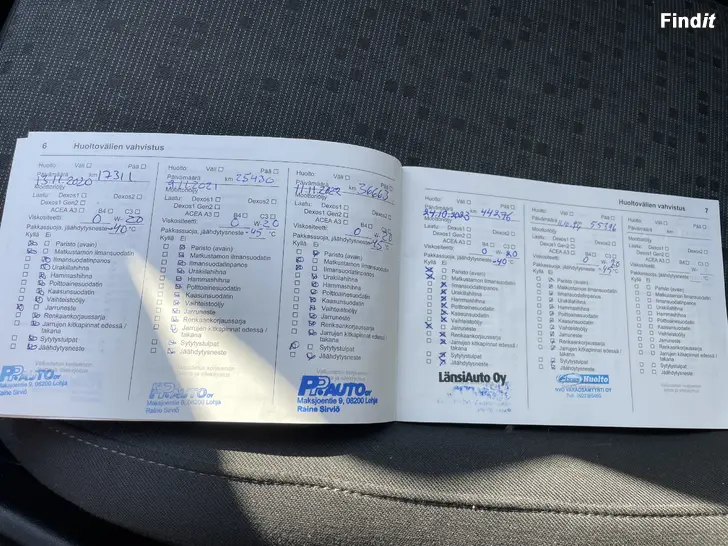 Findit
6 Huoltovälien vahvistus
Huolto: Väli Pää
Päivämäärä 13.11.2020 km 17311
Moottoriöljy
Laatu: Dexos1 Dexos2
Dexos1 Gen2
ACEA A3 B4 C3
Viskositeetti 0 W- 20
Pakkassuoja, jäähdytysneste -40 °C
Kyllä Ei
Paristo (avain)
Matkustamon ilmansuodatin
Ilmansuodatinpanos
Urakiilahihna
Hammashihna
Polttoainesuodatin
Kaasunsuodatin
Vaihteistoöljy
Jarruneste
Renkaankorjaussarja
Jarrujen kitkapinnat edessä / takana
Sytytystulpat
Jäähdytysneste
PP.AUTO OY
Maksjoentie 9, 08200 Lohja
Raine Sirviö
Huolto: Väli Pää
Päivämäärä 9.11.2021 km 25430
Moottoriöljy
Laatu: Dexos1 Dexos2
Dexos1 Gen2
ACEA A3 B4 C3
Viskositeetti 0 W- 20
Pakkassuoja, jäähdytysneste -45 °C
Kyllä Ei
Paristo (avain)
Matkustamon ilmansuodatin
Ilmansuodatinpanos
Urakiilahihna
Hammashihna
Polttoainesuodatin
Kaasunsuodatin
Vaihteistoöljy
Jarruneste
Renkaankorjaussarja
Jarrujen kitkapinnat edessä /
takana
Sytytystulpat
Jäähdytysneste
PP.AUTO OY
Maksjoentie 9, 08200 Lohja
Raine Sirviö
Huolto: Väli Pää
Päivämäärä 11.11.2022 km 36663
Moottoriöljy
Laatu: Dexos1 Dexos2
Dexos1 Gen2
ACEA A3 B4 C3
Viskositeetti 0 W- 20
Pakkassuoja, jäähdytysneste -45 °C
Kyllä Ei
Paristo (avain)
Matkustamon ilmansuodatin
Ilmansuodatinpanos
Urakiilahihna
Hammashihna
Polttoainesuodatin
Kaasunsuodatin
Vaihteistoöljy
Jarruneste
Renkaankorjaussarja
Jarrujen kitkapinnat edessä /
takana
Sytytystulpat
Jäähdytysneste
PP.AUTO OY
Maksjoentie 9, 08200 Lohja
Raine Sirviö
Huoltovälien vahvistus 7
Huolto: Väli Pää
Päivämäärä 24.10.2023 km 44276
Moottoriöljy
Laatu: Dexos1 Dexos2
Dexos1 Gen2
ACEA A3 B4 C3
Viskositeetti 0 W- 20
Pakkassuoja, jäähdytysneste -40 °C
Kyllä Ei
Paristo (avain)
Matkustamon ilmansuodatin
Ilmansuodatinpanos
Urakiilahihna
Hammashihna
Polttoainesuodatin
Kaasunsuodatin
Vaihteistoöljy
Jarruneste
Renkaankorjaussarja
Jarrujen kitkapinnat edessä /
takana
Sytytystulpat
Jäähdytysneste
LänsiAuto Oy
Huolto: Väli Pää
Päivämäärä km
Moottoriöljy
Laatu: Dexos1 Dexos2
Dexos1 Gen2
ACEA A3 B4 C3
Viskositeetti 0 W- 20
Pakkassuoja, jäähdytysneste -45 °C
Kyllä Ei
Paristo (avain)
Matkustamon ilmansuodatin
Ilmansuodatinpanos
Urakiilahihna
Hammashihna
Polttoainesuodatin
Kaasunsuodatin
Vaihteistoöljy
Jarruneste
Renkaankorjaussarja
Jarrujen kitkapinnat edessä /
takana
Sytytystulpat
Jäähdytysneste
Huolto
Huolto: Väli Pää
Päivämäärä km
Moottoriöljy
Laatu: Dexos1 Dexos2
Dexos1 Gen2
ACEA A3 B4 C3
Viskositeetti W-
Pakkassuoja, jäähdytysneste °C
Kyllä Ei
Paristo (avain)
Matkustamon ilmansuodatin
Ilmansuodatinpanos
Urakiilahihna
Hammashihna
Polttoainesuodatin
Kaasunsuodatin
Vaihteistoöljy
Jarruneste
Renkaankorjaussarja
Jarrujen kitkapinnat edessä /
takana
Sytytystulpat
Jäähdytysneste